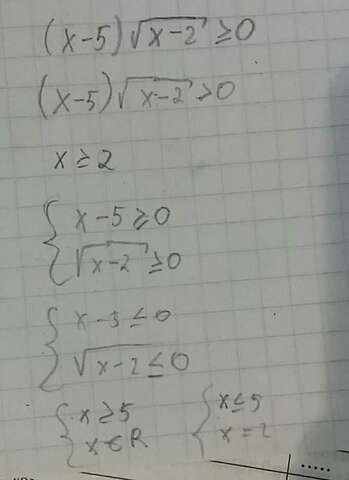 (x-5)√x-2 ≥0
(x-5)√x-2 >0
x≥2
{ x-5≥0
√x-2 ≥0
{ x-5≤0
√x-2 ≤0
{ x≥5 { x≤5
x∈R x=2
.....